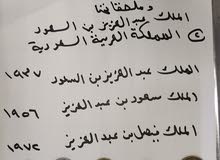 وملحقاتها
الملك عبدالعزيز بن السعود
② المملكة العربية السعودية
الملك عبدالعزيز بن السعود ١٩٣٧
الملك سعود بن عبدالعزيز ١٩٥٦
الملك فيصل بن عبدالعزيز ١٩٧٢